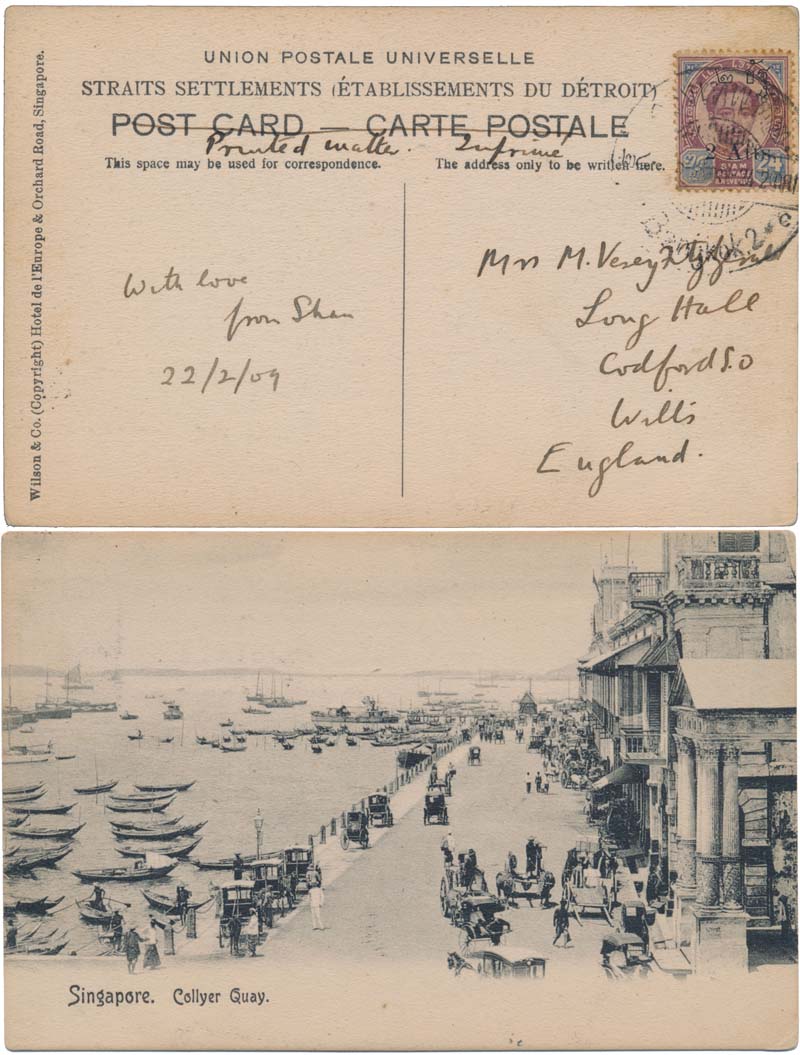 UNION POSTALE UNIVERSELLE
STRAITS SETTLEMENTS (ÉTABLISSEMENTS DU DÉTROIT)
POST CARD — CARTE POSTALE
Printed matter. Imprimé
This space may be used for correspondence.
The address only to be written here.
Wilson & Co. (Copyright) Hotel de l'Europe & Orchard Road, Singapore.
With love
from Shan
22/2/09
Mrs M. Vesey Fitzgerald
Long Hall
Codford S.O
Wilts
England.
2 Atts
24 SIAM 24
POSTAGE
& REVENUE
Bangkok 2
Singapore. Collyer Quay.